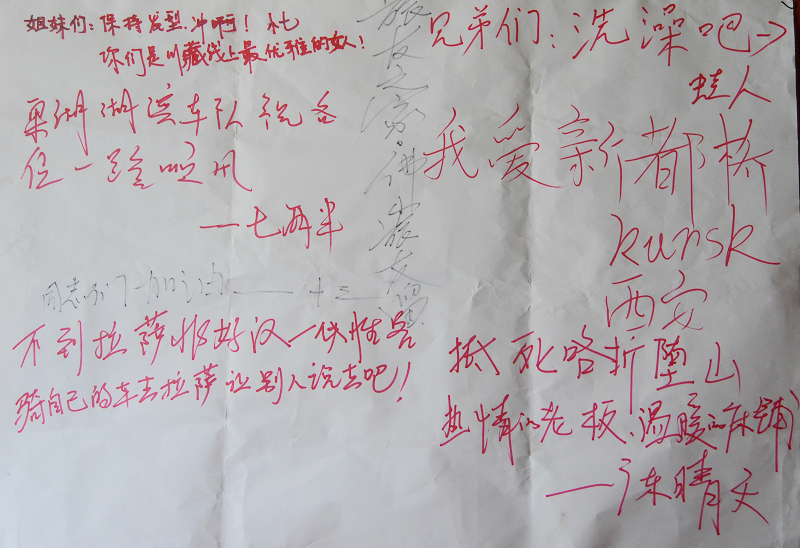 姐妹们：保持发型，冲啊！
你们是川藏线上最优秀的女人！
巢湖湖滨车队祝各
位一路顺风
——七两半
同志们 加油——十三
不到拉萨非好汉 一伙性客
骑自己的车去拉萨让别人说去吧！
旅友之家，佛
兄弟们：洗澡吧→
蛙人
我爱新都桥
kunsk
西安
抵死咯折堕山
热情的老板、温暖的床铺
——陈晴文